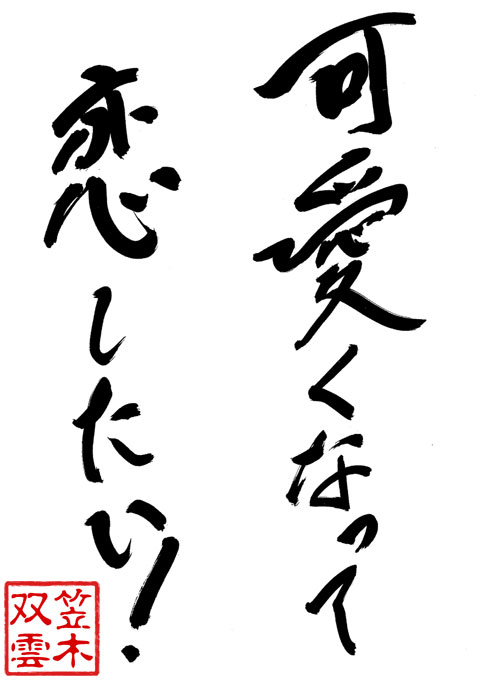 可愛くなって
恋したい!
笠木
双雲